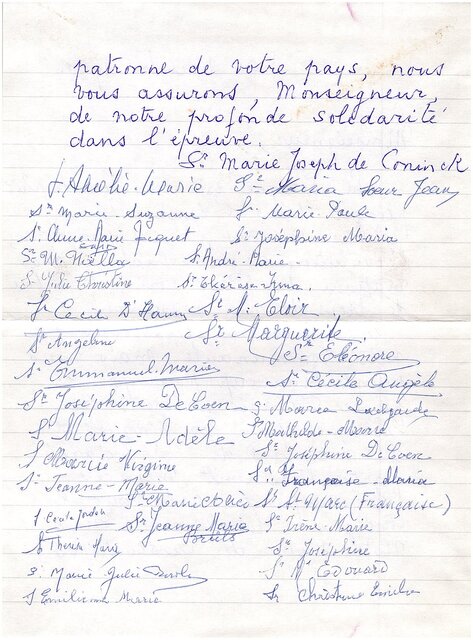 patronne de votre pays, nous
vous assurons, Monseigneur,
de notre profonde solidarité
dans l'épreuve.
Sr Marie Joseph de Coninck
S. Amélie-Marie Sr Maria Jean
Sr Marie-Suzanne Sr Marie-Paule
Sr Anne-Marie Jacquet Sr Joséphine Maria
Sr M. Noëlla Sr André-Marie.
Sr Julie Christine Sr Thérèse-Irma.
Sr Cécile St M. Eloir
Sr Angeline Sr Marguerite
Sr Eléonore
Sr Emmanuel-Marie Sr Cécile Angèle
Sr Joséphine De Coen Sr Maria
S Marie-Adèle Sr Mathilde-Marie
S Marie Virginie Sr Joséphine De Coen
Sr Jeanne-Marie Sr Françoise-Maria
Sr Marie Sr St Marc (Française)
S Cécile Sr Jeanne Marie Sr Irène-Marie
Sr Theresa Maria Sr Joséphine
Sr Marie Julie Sr M. Edouard
S Emilienne Marie Sr Christine Emilie